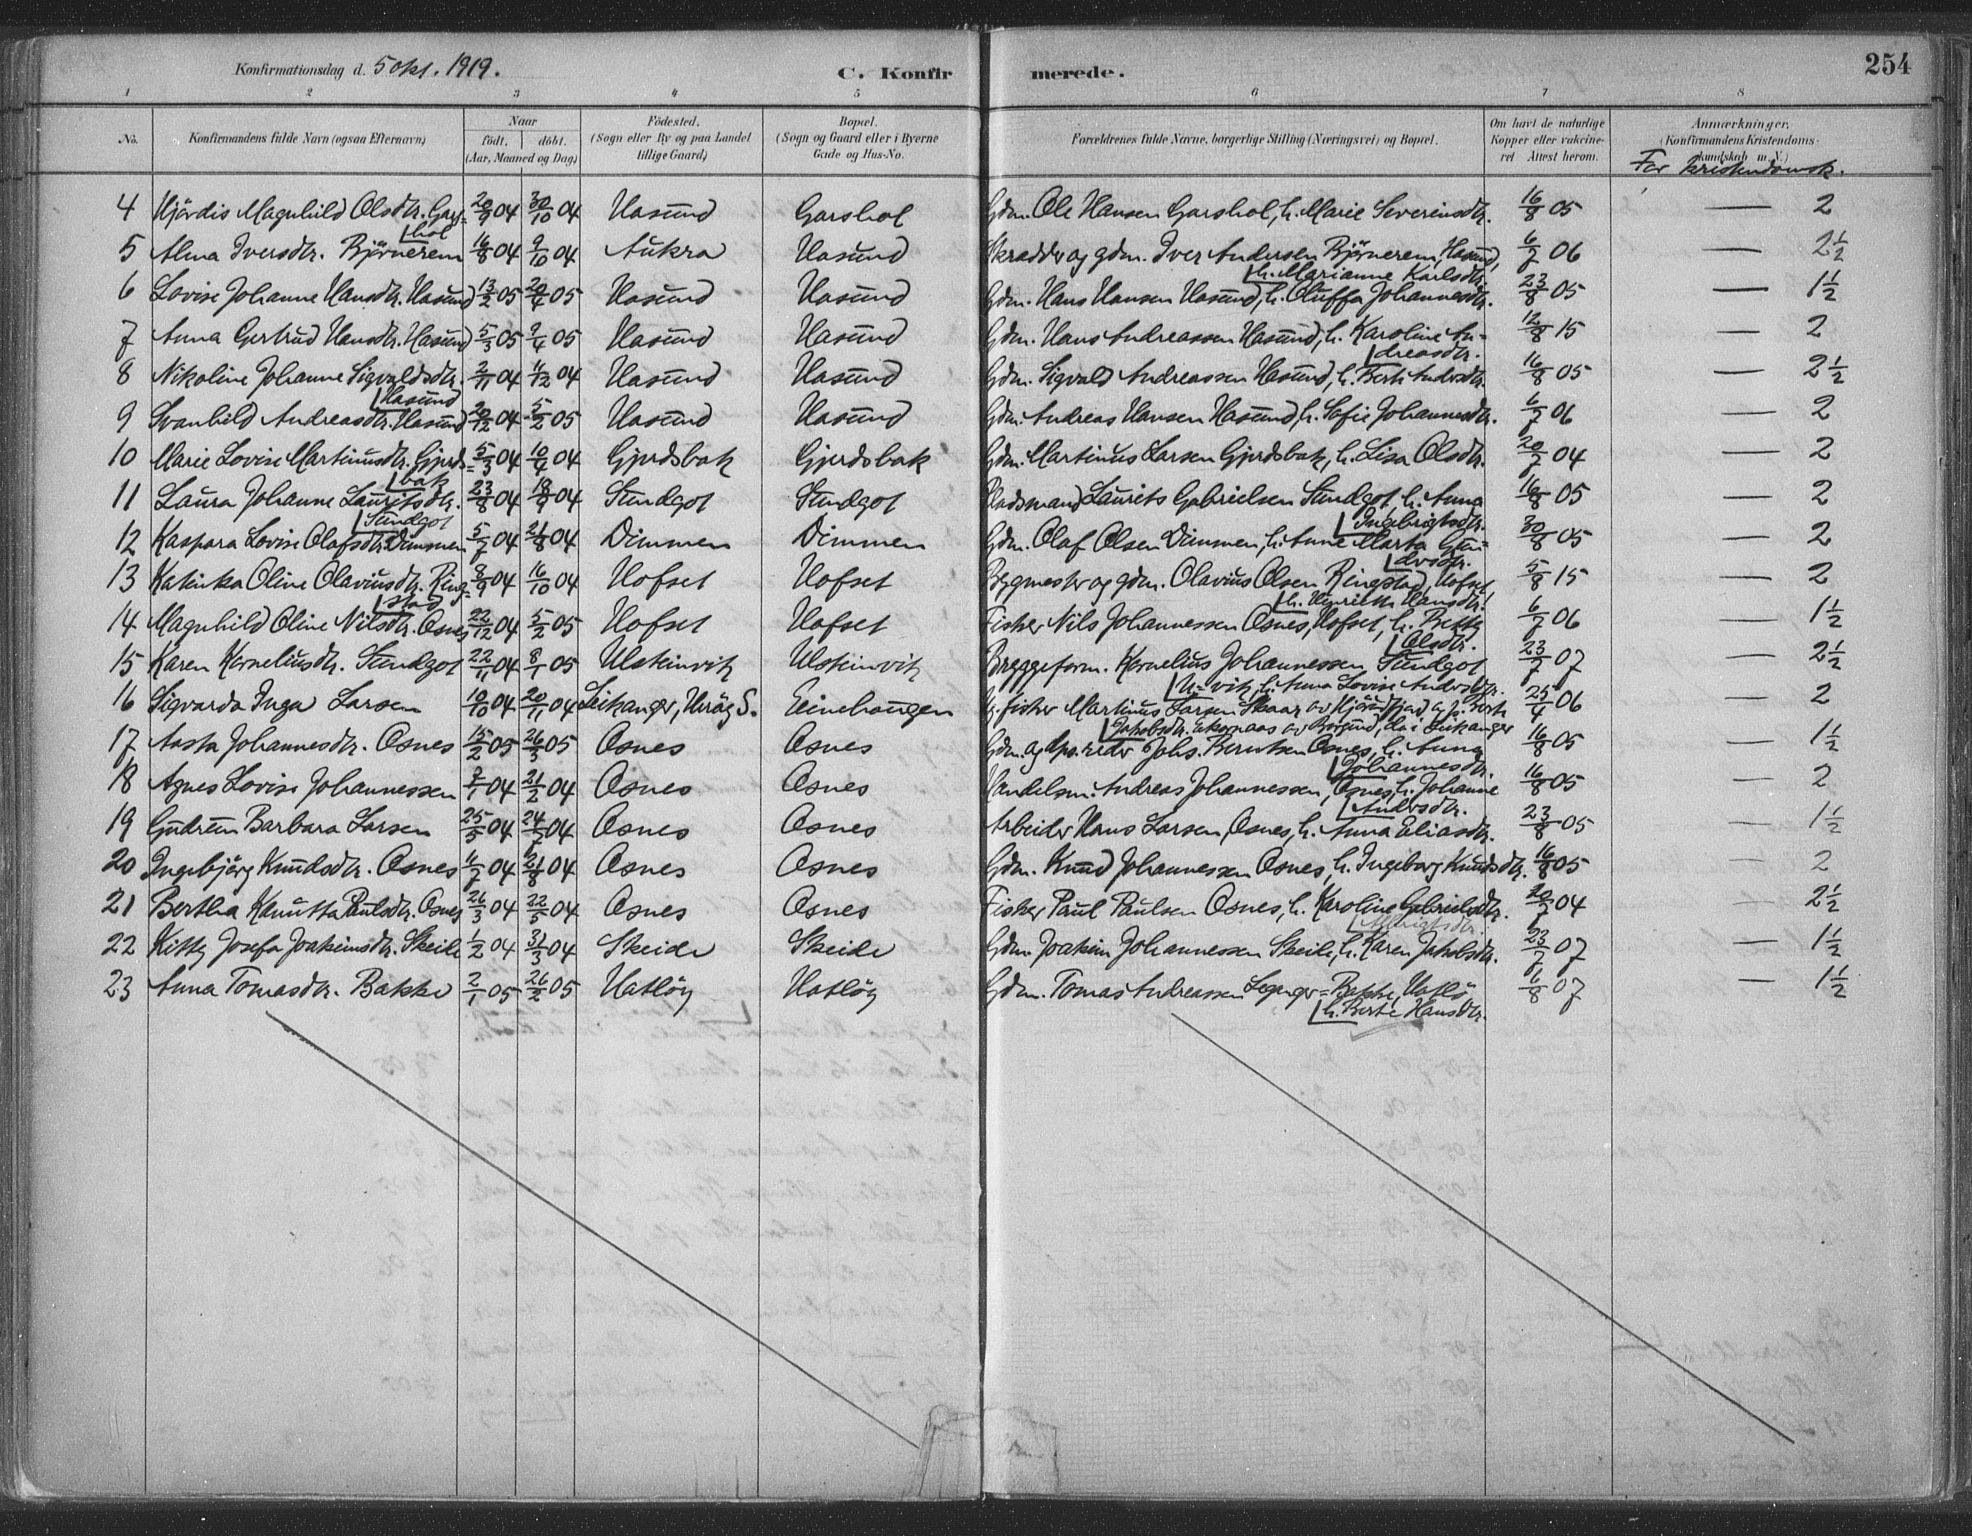 Konfirmationsdag d. 5 okt. 1919.
C. Konfirmerede.
254
1 2 3 4 5 6 7 8
No. Konfirmandens fulde Navn (ogsaa Efternavn) Naar født. døbt. (Aar, Maaned og Dag) Fødested. (Sogn eller By og paa Landet tillige Gaard) Bopæl. (Sogn og Gaard eller i Byerne Gade og Hus-No. Forældrenes fulde Navne, borgerlige Stilling (Næringsvei) og Bopæl. Om havt de naturlige Kopper eller vaccineret Attest herom. Anmærkninger. (Konfirmandens Kristendomskundskab m. V.)
For kristendomsk.
4 Hjördis Magnhild Olsdtr. Garshol 20/9 04 30/10 04 Hasund Garshol Gdm. Ole Hansen Garshol, h. Marie Severinsdtr. 16/8 05 — 2
5 Alma Iversdtr. Björnerem 16/8 04 9/10 04 Aukra Hasund Skrædder og gdm. Iver Andersen Björnerem, Hasund, h. Marianne Karlsdtr. 6/7 06 — 2½
6 Lovise Johanne Hansdtr. Hasund 13/2 05 20/4 05 Hasund Hasund Gdm. Hans Hansen Hasund, h. Oluffa Johannesdtr. 23/8 05 — 1½
7 Anna Gertrud Hansdtr. Hasund 5/3 05 9/4 05 Hasund Hasund Gdm. Hans Andreassen Hasund, h. Karoline Andreasdtr. 12/8 15 — 2
8 Nikoline Johanne Sigvaldsdtr. Hasund 2/11 04 4/12 04 Hasund Hasund Gdm. Sigvald Andreassen Hasund, h. Berte Andrsdtr. 16/8 05 — 2½
9 Svanhild Andreasdtr. Hasund 20/12 04 5/2 05 Hasund Hasund Gdm. Andreas Hansen Hasund, h. Sofie Johannesdtr. 6/7 06 — 2
10 Marie Lovise Martinusdtr. Gjerdsbak 5/3 04 10/4 04 Gjerdsbak Gjerdsbak Gdm. Martinus Larsen Gjerdsbak, h. Lisa Olsdtr. 20/7 04 — 2
11 Laura Johanne Lauritsdtr. Sundgot 23/8 04 18/9 04 Sundgot Sundgot Pladsmand Laurits Gabrielsen Sundgot, h. Anna Ingebrigtsdtr. 16/8 05 — 2
12 Kaspara Lovise Olafsdtr. Dimmen 5/7 04 21/8 04 Dimmen Dimmen Gdm. Olaf Olsen Dimmen, h. Anne Marta 30/8 05 — 2
13 Katinka Oline Olaviusdtr. Ringstad 8/9 04 16/10 04 Hofset Hofset Bygmester og gdm. Olavius Olsen Ringstad, Hofset h. Henriette Hansdtr. 5/8 15 — 2
14 Magnhild Oline Nilsdtr. Osnes 22/12 04 5/2 05 Hofset Hofset Fisker Nils Johannessen Osnes, Hofset, h. Betty Olsdtr. 6/7 06 — 1½
15 Karen Korneliusdtr. Sundgot 22/11 04 8/1 05 Ulsteinvik Ulsteinvik Bryggeform. Kornelius Johannessen Sundgot U=vik, h. Anna Lovise Andrsdtr. 23/7 07 — 2½
16 Sigvarda Inga Larsen 10/10 04 20/11 04 Leikanger, Heröy S. Einehaugen Fisker Martinus Larsen Skaar av Hjörundfjord og h. Berte Jakobsdtr. Aakornaas av Borgund, da i Leikanger 25/4 06 — 2
17 Aasta Johannesdtr. Osnes 15/2 05 26/3 05 Osnes Osnes Gdm. og Johs. Berntsen Osnes, h. Anna Johannesdtr. 16/8 05 — 1½
18 Agnes Lovise Johannessen 2/1 04 21/2 04 Osnes Osnes Handelsm. Andreas Johannessen, Osnes, h. Johanne Andrsdtr. 16/8 05 — 2
19 Gudrun Barbara Larsen 25/5 04 24/7 04 Osnes Osnes Arbeider Hans Larsen, Osnes, h. Anna Eliasdtr. 23/8 05 — 1½
20 Ingebjörg Knudsdtr. Osnes 4/7 04 21/8 04 Osnes Osnes Gdm. Knud Johannessen Osnes, h. Ingeborg Knudsdtr. 16/8 05 — 2
21 Bertha Kanutta Paulsdtr. Osnes 26/3 04 22/5 04 Osnes Osnes Fisker Paul Paulsen Osnes, h. Karoline Gabrielsdtr. 20/7 04 — 2½
22 Kitty Josefa Joakimsdtr. Skeide 1/2 04 31/3 04 Skeide Skeide Gdm. Joakim Johannessen Skeide, h. Karen Jakobsdtr. 23/7 07 — 1½
23 Anna Tomasdtr. Bakke 2/1 05 26/2 05 Hatløy Hatløy Gdm. Tomas Andreassen Bakke, Hatlö h. Berte Hansdtr. 6/8 07 — 1½